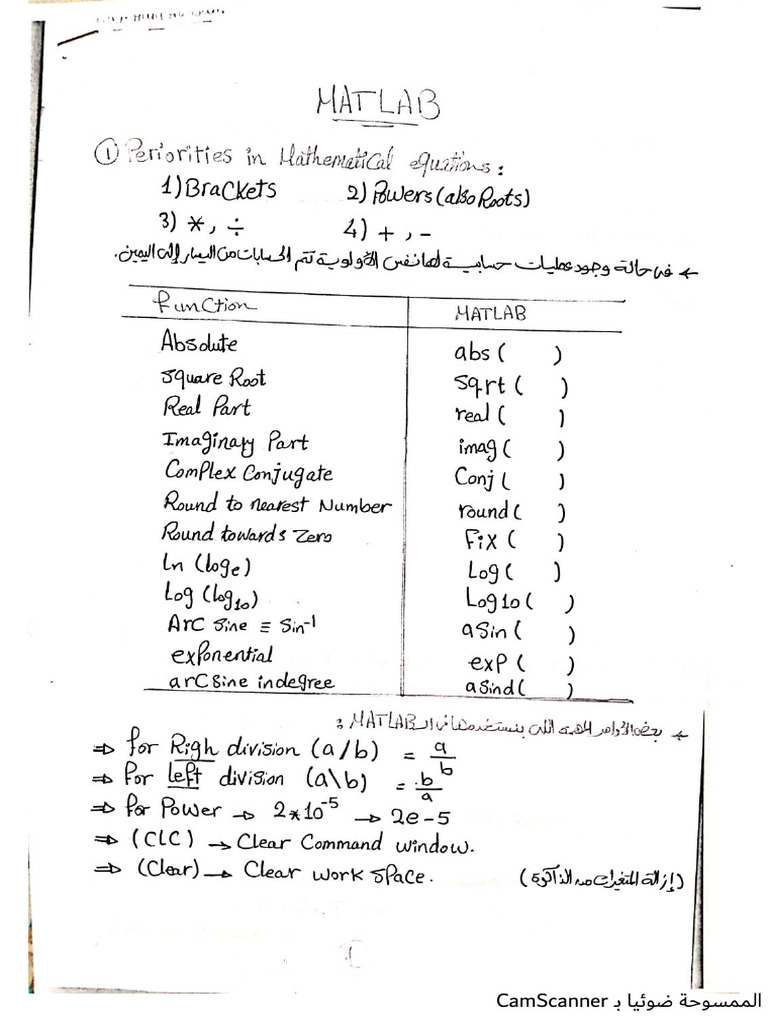 MATLAB
① Periorities in Mathematical equations:
1) Brackets 2) Powers (also Roots)
3) *, ÷ 4) +, -
← فى حالة وجود عمليات حسابية لها نفس الأولوية تتم الحسابات من اليسار إلى اليمين.
Function MATLAB
Absolute abs ( )
Square Root Sqrt ( )
Real Part real ( )
Imaginary Part imag ( )
Complex Conjugate Conj ( )
Round to nearest Number round ( )
Round towards Zero Fix ( )
Ln (logₑ) Log ( )
Log (log₁₀) Log10 ( )
Arc Sine ≡ Sin⁻¹ aSin ( )
exponential exp ( )
arc Sine in degree aSind ( )
← بعض الأوامر المهمة اللى بنستخدمها فى الـ MATLAB :
⇒ for Righ division (a/b) = a/b
⇒ For left division (a\b) = b/a
⇒ for Power → 2*10⁻⁵ → 2e-5
⇒ (CLC) → Clear Command window.
⇒ (Clear) → Clear work space. (إزالة المتغيرات من الذاكرة)
1
الممسوحة ضوئيا بـ CamScanner